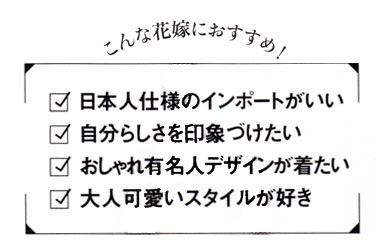 こんな花嫁におすすめ!
日本人仕様のインポートがいい
自分らしさを印象づけたい
おしゃれ有名人デザインが着たい
大人可愛いスタイルが好き